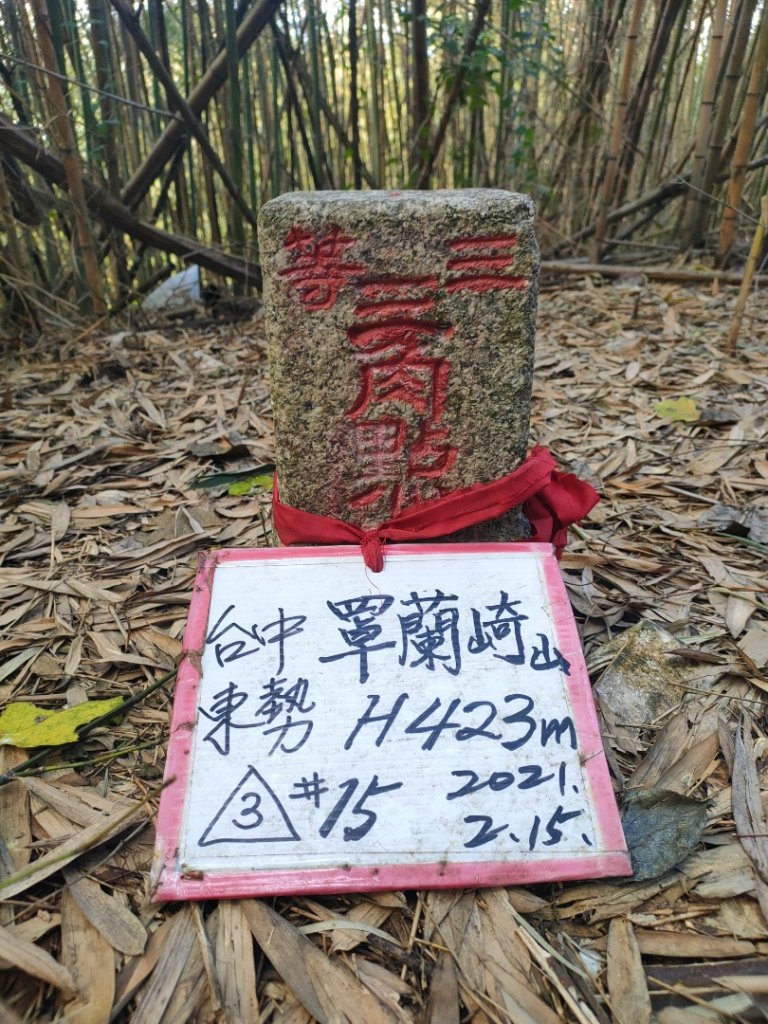 三等
三角點
台中 罩蘭崎山
東勢 H423m
3 #15 2021.
2.15.